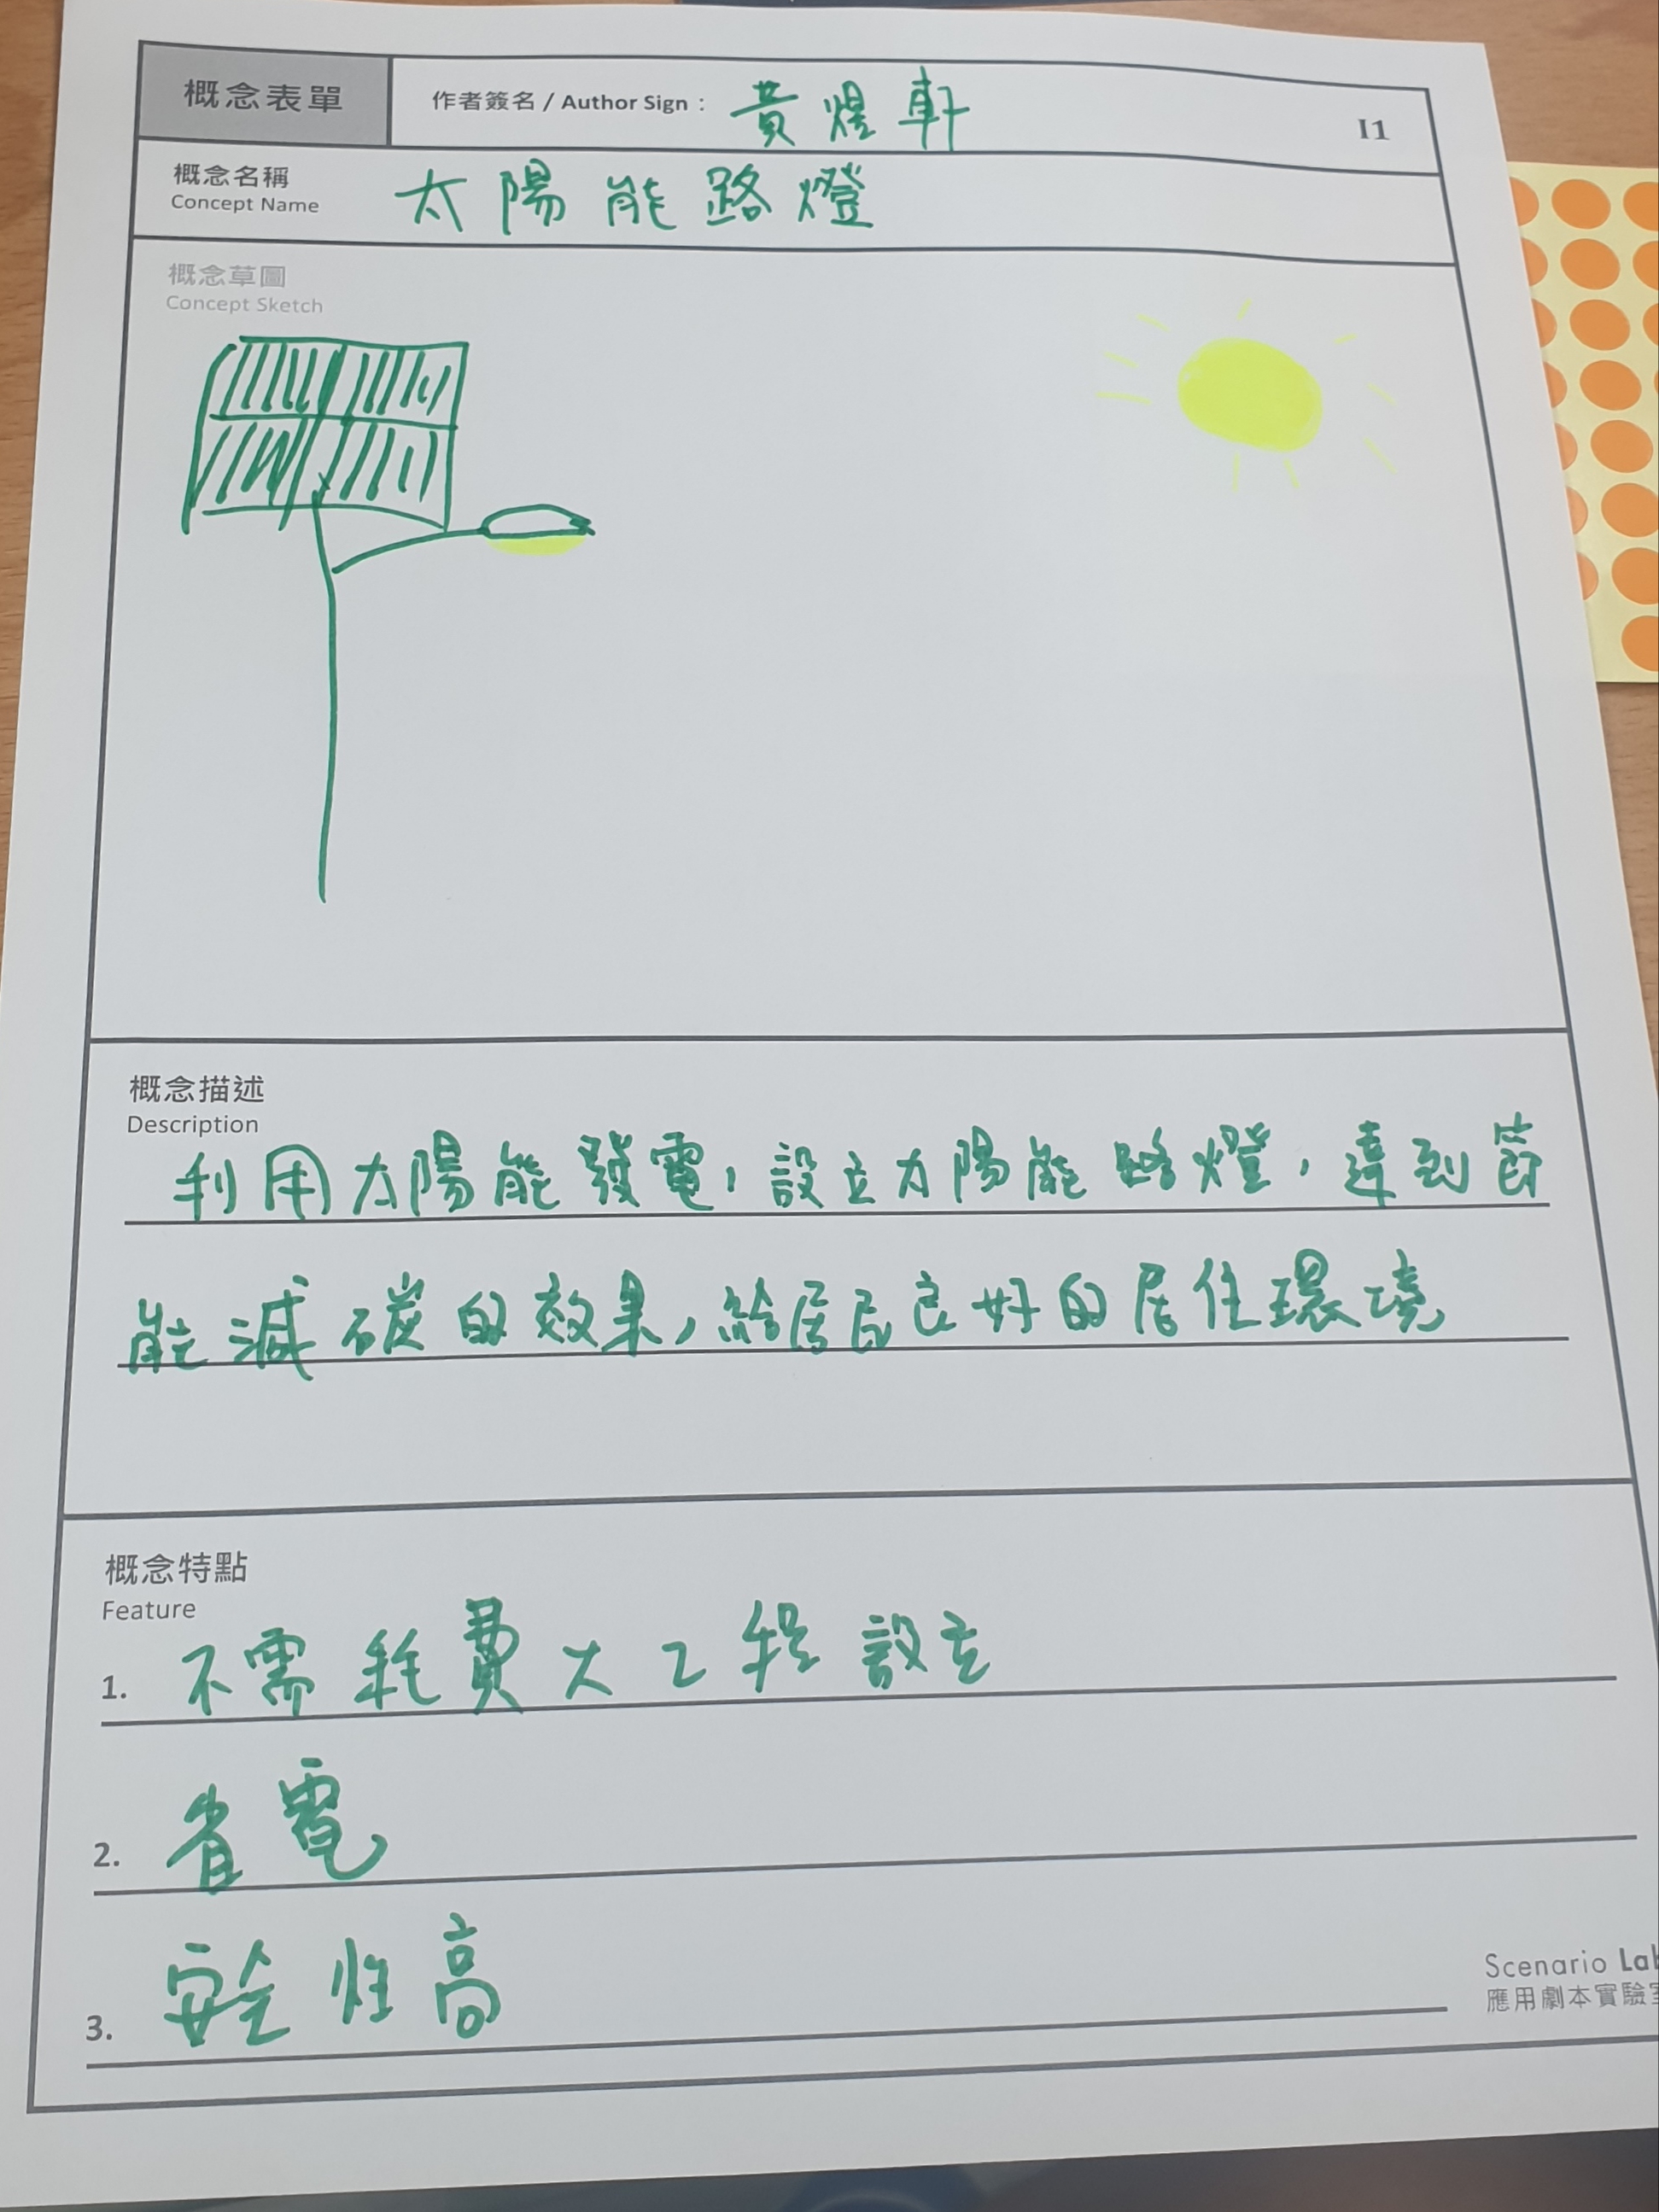 概念表單
作者簽名 / Author Sign : 黃煜軒
I1
概念名稱
Concept Name
太陽能路燈
概念草圖
Concept Sketch
概念描述
Description
利用太陽能發電，設立太陽能路燈，達到節
能減碳的效果，給居民良好的居住環境
概念特點
Feature
1. 不需耗費大工程設立
2. 省電
3. 安全性高
Scenario Lab
應用劇本實驗室